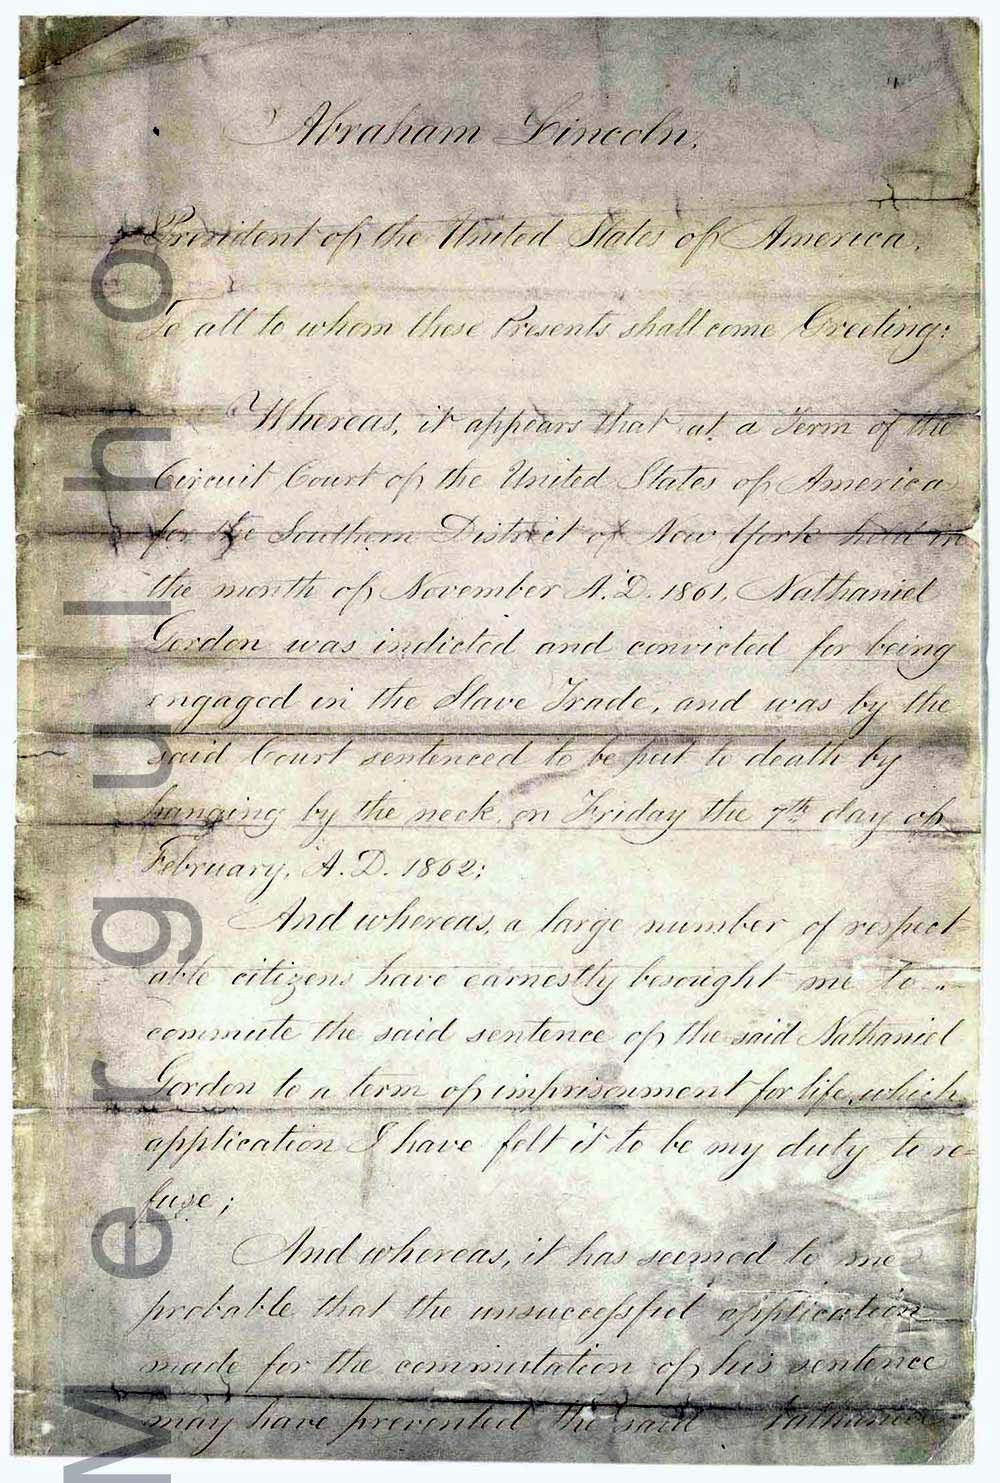 Abraham Lincoln,
President of the United States of America,
To all to whom these Presents shall come Greeting:
Whereas, it appears that at a Term of the
Circuit Court of the United States of America
for the Southern District of New York held in
the month of November A.D. 1861, Nathaniel
Gordon was indicted and convicted for being
engaged in the Slave Trade, and was by the
said Court sentenced to be put to death by
hanging by the neck, on Friday the 7th day of
February, A.D. 1862;
And whereas, a large number of respect-
able citizens have earnestly besought me to
commute the said sentence of the said Nathaniel
Gordon to a term of imprisonment for life, which
application I have felt it to be my duty to re-
fuse;
And whereas, it has seemed to me
probable that the unsuccessful application
made for the commutation of his sentence
may have prevented the said Nathaniel
Mergulho